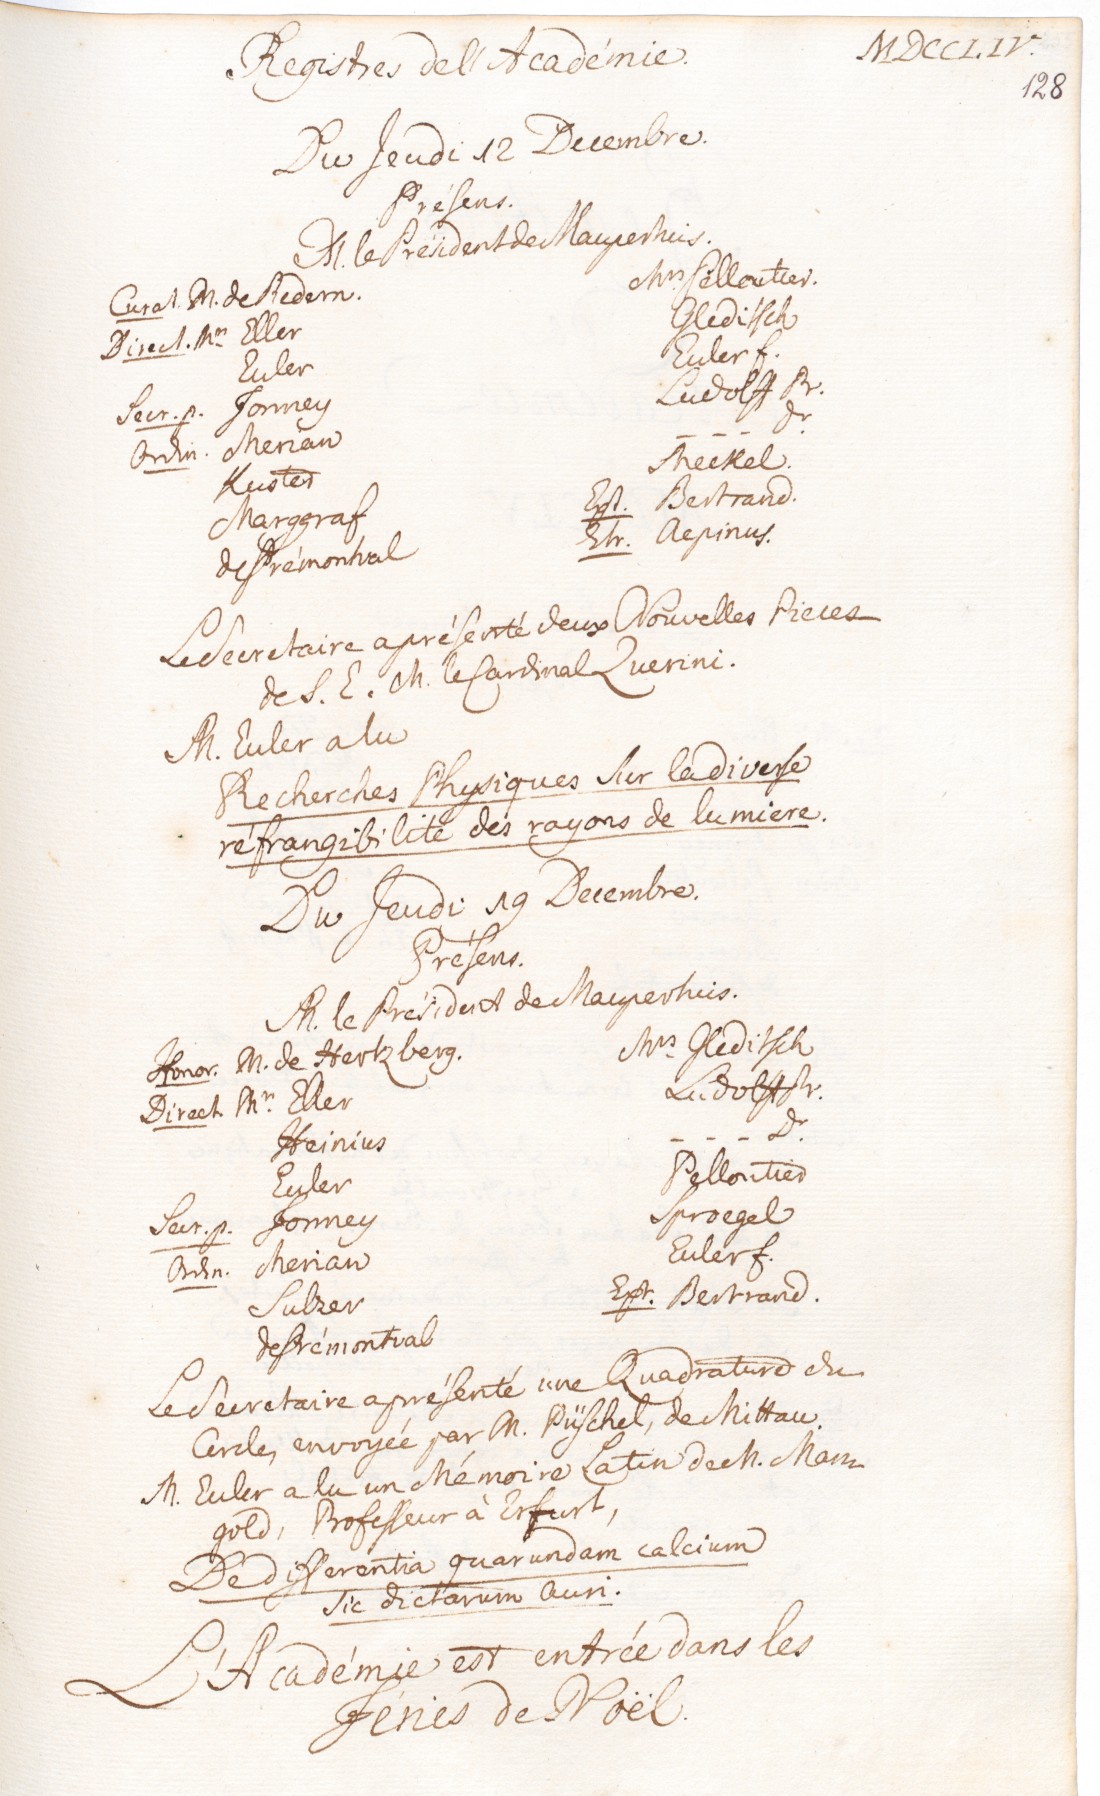 Registres de l'Académie.
MDCCLIV.
128
Du Jeudi 12 Decembre.
Présens.
M. le Président de Maupertuis.
Curat. M. de Redern.
Direct. Mrs Eller
Euler
Secr. p. Formey
Ordin. Merian
Kuster
Marggraf
de Prémontval
Mrs Pelloutier.
Gleditsch
Euler f.
Ludolff Pr.
- - - - Dr.
Meckel.
Ext. Bertrand.
Etr. Aepinus.
Le Secretaire a présenté deux Nouvelles Pieces
de S. E. M. le Cardinal Querini.
M. Euler a lu
Recherches Physiques sur la diverse
réfrangibilité des rayons de lumiere.
Du Jeudi 19 Decembre.
Présens.
M. le Président de Maupertuis.
Honor. M. de Hertzberg.
Direct. Mrs Eller
Heinius
Euler
Secr. p. Formey
Ordin. Merian
Sulzer
de Prémontval
Mrs Gleditsch
Ludolff Pr.
- - - - Dr.
Pelloutier
Sproegel
Euler f.
Ext. Bertrand.
Le Secretaire a présenté une Quadrature du
Cercle, envoyée par M. Püschel, de Mittau.
M. Euler a lu un Mémoire Latin de M. Man-
gold, Professeur à Erfurt,
De differentia quarundam calcium
sic dictarum auri.
L'Académie est entrée dans les
Féries de Noël.